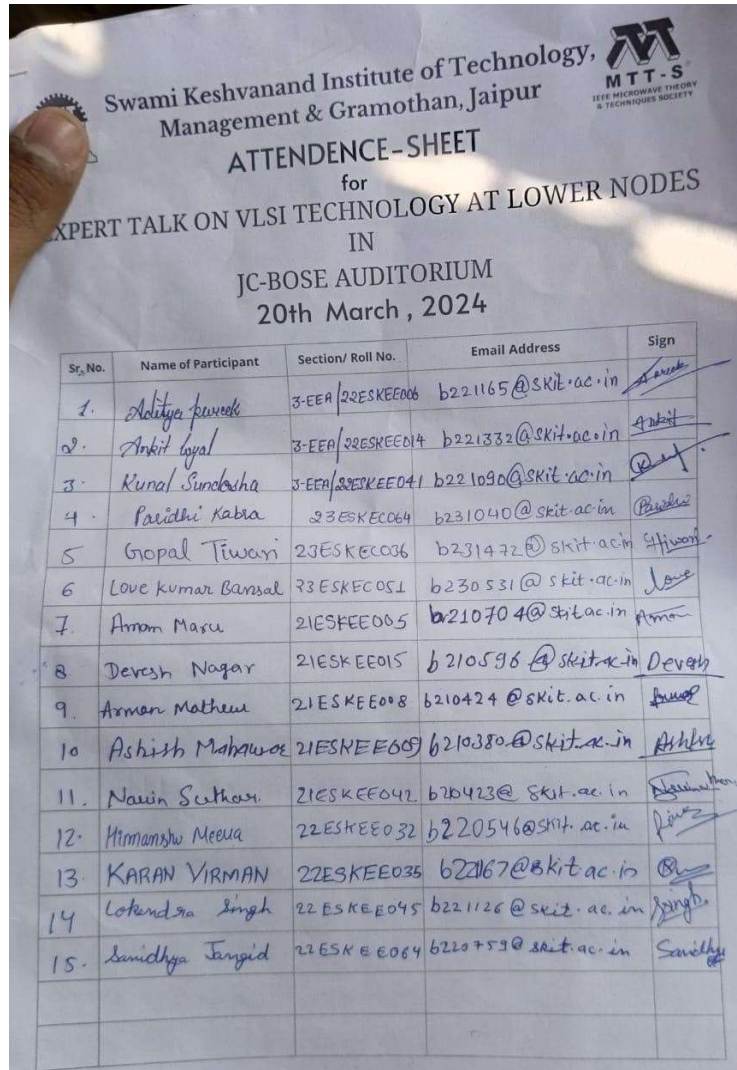 Swami Keshvanand Institute of Technology,
Management & Gramothan, Jaipur
MTT-S
IEEE MICROWAVE THEORY
& TECHNIQUES SOCIETY
ATTENDENCE-SHEET
for
XPERT TALK ON VLSI TECHNOLOGY AT LOWER NODES
IN
JC-BOSE AUDITORIUM
20th March, 2024
Sr. No. Name of Participant Section/ Roll No. Email Address Sign
1. Aditya pareek 3-EEA/22ESKEE006 b221165@skit.ac.in
2. Ankit Goyal 3-EEA/22ESKEE014 b221332@skit.ac.in Ankit
3. Kunal 3-EEA/22ESKEE041 b221090@skit.ac.in
4. Paridhi Kabra 23ESKEC064 b231040@skit.ac.in
5 Gopal Tiwari 23ESKEC036 b231472@skit.ac.in
6 Love Kumar Bansal 23ESKEC051 b230531@skit.ac.in love
7. Amam Maru 21ESKEE005 b210704@skit.ac.in
8 Devesh Nagar 21ESKEE015 b210596@skit.ac.in Devesh
9. Arman Mathew 21ESKEE008 b210424@skit.ac.in
10 Ashish 21ESKEE009 b210380@skit.ac.in
11. Navin Suthar. 21ESKEE042 b210423@skit.ac.in
12. Himanshu Meena 22ESKEE032 b220546@skit.ac.in
13. KARAN VIRMAN 22ESKEE035 b221167@skit.ac.in
14 Lokendra Singh 22ESKEE045 b221126@skit.ac.in Singh
15. Sanidhya Jangid 22ESKEE064 b220759@skit.ac.in Sanidhya